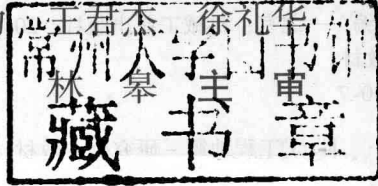 王君杰 徐礼华
常州大学图书馆
林皋 主审
藏书章